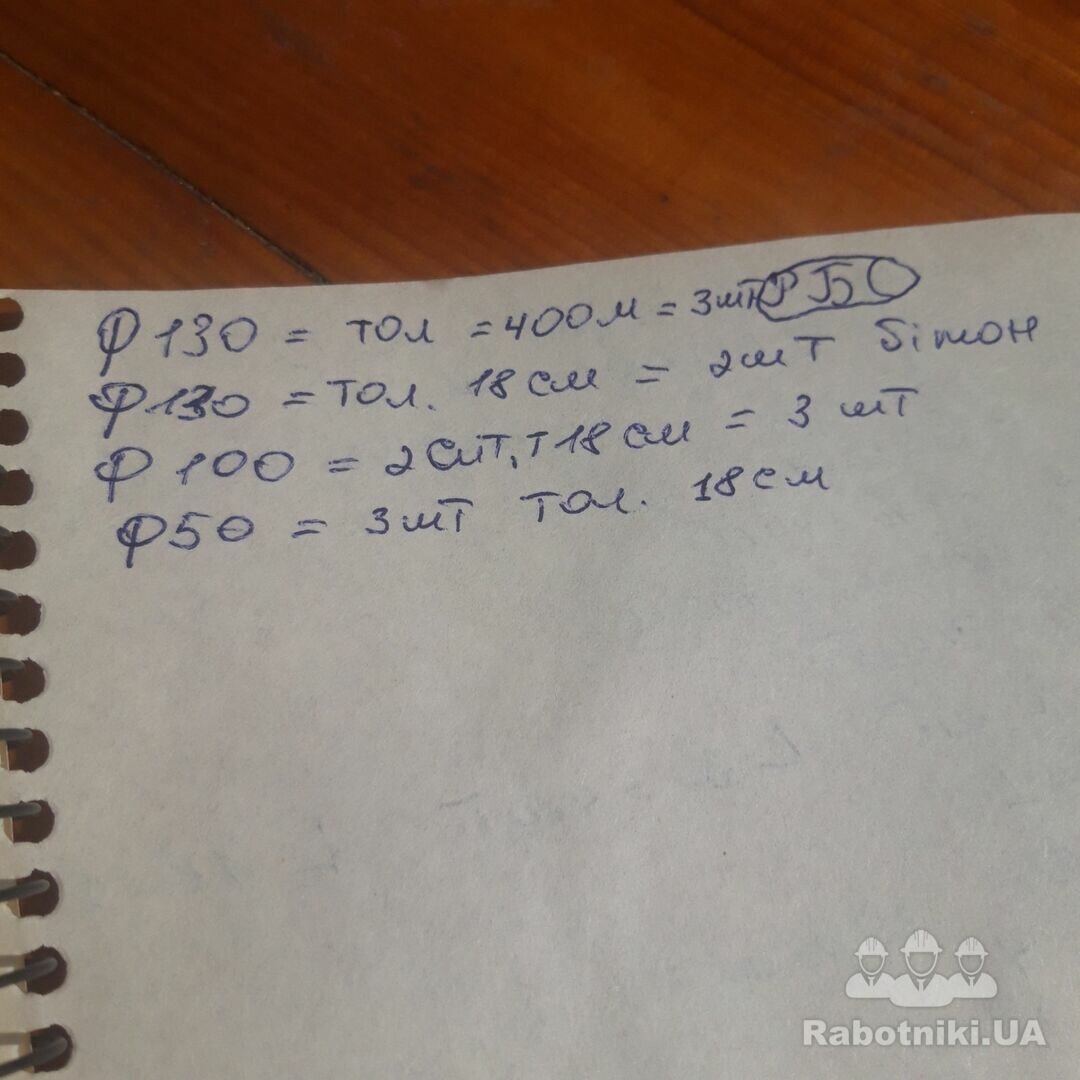 Ф130 = тол = 400м = 3шт РБО
Ф130 = тол. 18 см = 2шт бітон
Ф 100 = т 18 см = 3 шт
Ф50 = 3шт тол. 18 см
Rabotniki.UA